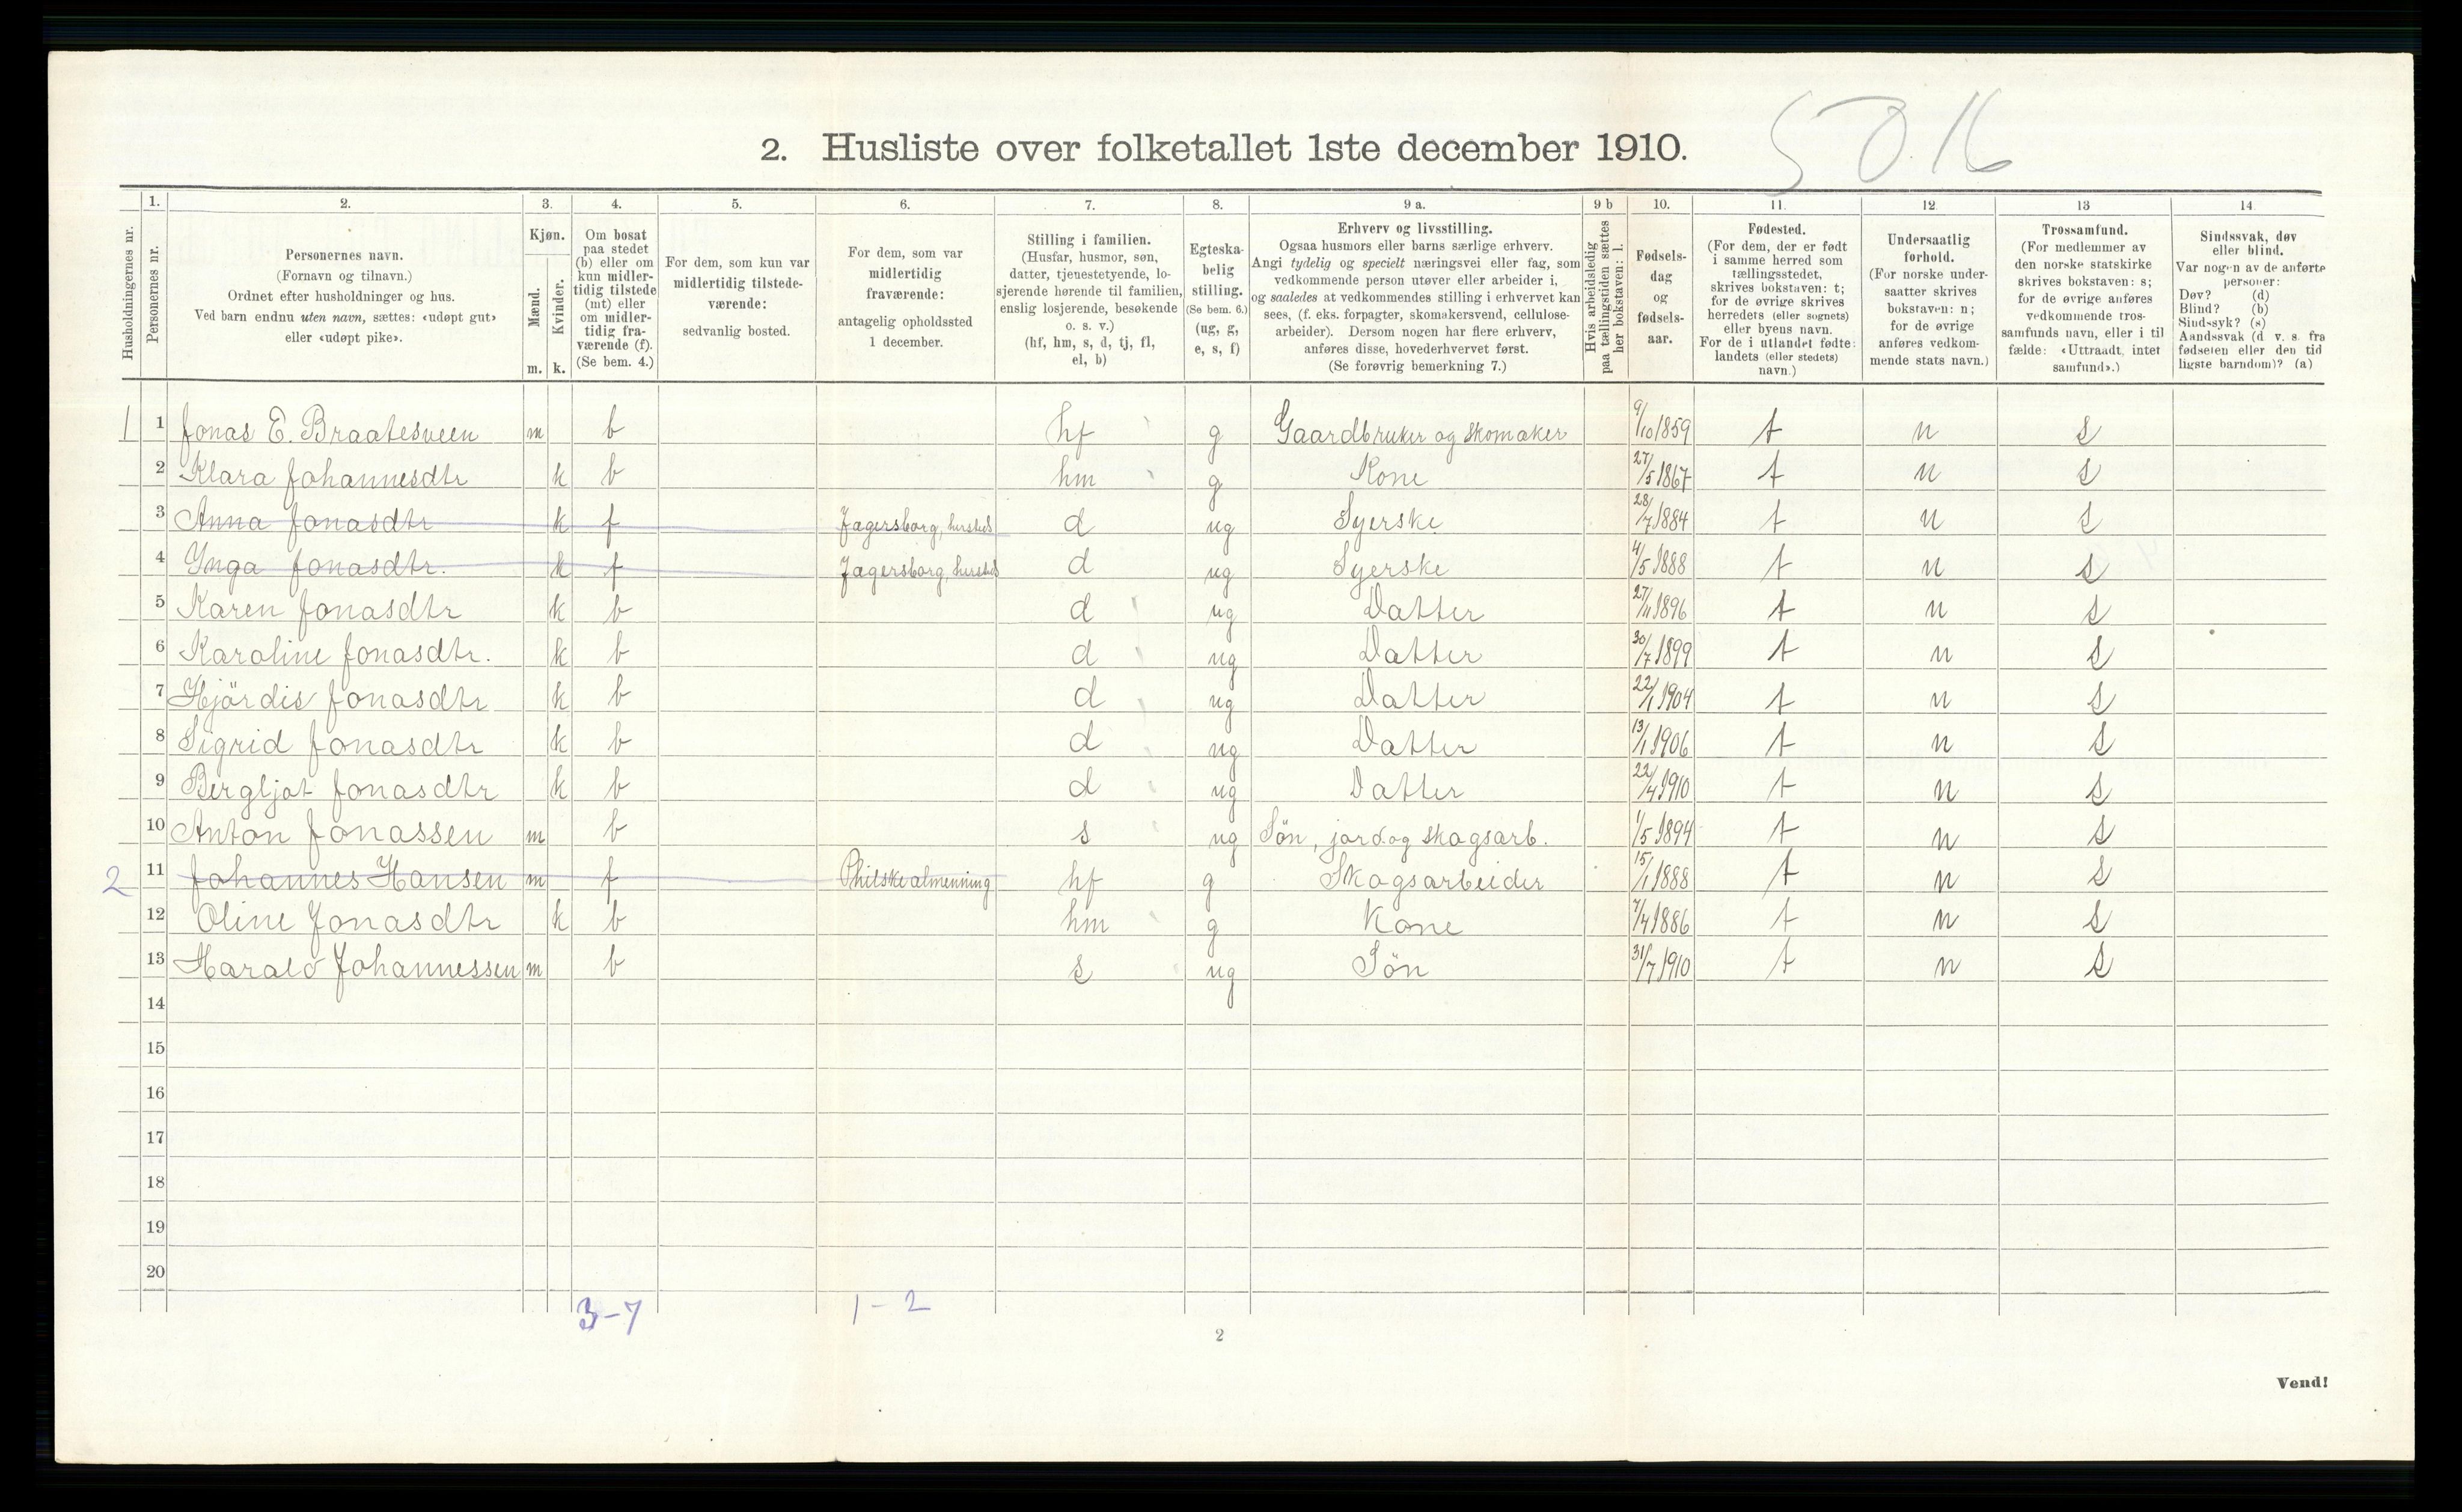 2. Husliste over folketallet 1ste december 1910.
Husholdningernes nr.
1. Personernes nr.
2. Personernes navn. (Fornavn og tilnavn.) Ordnet efter husholdninger og hus. Ved barn endnu uten navn, sættes: «udøpt gut» eller «udøpt pike».
3. Kjøn. Mænd. m. Kvinder. k.
4. Om bosat paa stedet (b) eller om kun midlertidig tilstede (mt) eller om midlertidig fraværende (f). (Se bem. 4.)
5. For dem, som kun var midlertidig tilstedeværende: sedvanlig bosted.
6. For dem, som var midlertidig fraværende: antagelig opholdssted 1 december.
7. Stilling i familien. (Husfar, husmor, søn, datter, tjenestetyende, losjerende hørende til familien, enslig losjerende, besøkende o. s. v.) (hf, hm, s, d, tj, fl, el, b)
8. Egteskabelig stilling. (Se bem. 6.) (ug, g, e, s, f)
9 a. Erhverv og livsstilling. Ogsaa husmors eller barns særlige erhverv. Angi tydelig og specielt næringsvei eller fag, som vedkommende person utøver eller arbeider i, og saaledes at vedkommendes stilling i erhvervet kan sees, (f. eks. forpagter, skomakersvend, cellulosearbeider). Dersom nogen har flere erhverv, anføres disse, hovederhvervet først. (Se forøvrig bemerkning 7.)
9 b Hvis arbeidsledig paa tællingstiden sættes her bokstaven: l.
10. Fødselsdag og fødselsaar.
11. Fødested. (For dem, der er født i samme herred som tællingsstedet, skrives bokstaven: t; for de øvrige skrives herredets (eller sognets) eller byens navn. For de i utlandet fødte: landets (eller stedets) navn.)
12. Undersaatlig forhold. (For norske undersaatter skrives bokstaven: n; for de øvrige anføres vedkommende stats navn.)
13 Trossamfund. (For medlemmer av den norske statskirke skrives bokstaven: s; for de øvrige anføres vedkommende trossamfunds navn, eller i tilfælde: «Uttraadt, intet samfund».)
14. Sindssvak, døv eller blind. Var nogen av de anførte personer: Døv? (d) Blind? (b) Sindssyk? (s) Aandssvak (d. v. s. fra fødselen eller den tidligste barndom)? (a)
1 1 Jonas E. Braatesveen m b hf g Gaardbruker og skomaker 9/10 1859 t n s
2 Klara Johannesdtr k b hm g Kone 27/5 1867 t n s
3 Anna Jonasdtr k f Jagersborg, d ug Syerske 28/7 1884 t n s
4 Ynga Jonasdtr. k f Jagersborg, d ug Syerske 4/5 1888 t n s
5 Karen Jonasdtr k b d ug Datter 27/11 1896 t n s
6 Karoline Jonasdtr. k b d ug Datter 30/7 1899 t n s
7 Hjördis Jonasdtr k b d ug Datter 22/1 1904 t n s
8 Sigrid Jonasdtr k b d ug Datter 13/1 1906 t n s
9 Bergljot Jonasdtr k b d ug Datter 22/4 1910 t n s
10 Anton Jonassen m b s ug Søn, jord.og skogsarb. 1/5 1894 t n s
2 11 Johannes Hansen m f almenning hf g Skogsarbeider 15/1 1888 t n s
12 Oline Jonasdtr k b hm g Kone 7/4 1886 t n s
13 Harald Johannessen m b s ug Sön 31/7 1910 t n s
14
15
16
17
18
19
20
3-7 1-2
2
Vend!